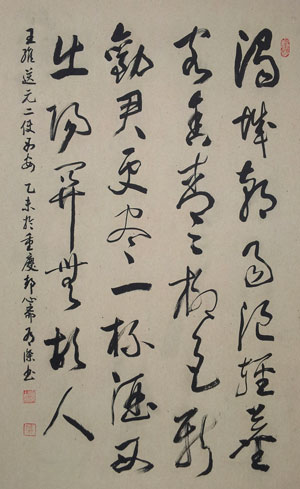 渭城朝雨浥輕塵
客舍青々柳色新
勸君更盡一杯酒西
出陽關無故人
王維送元二使西安 乙未於重慶 心齋 書